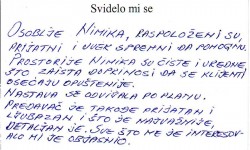 Svidelo mi se
OSOBLJE NIMIKA, RASPOLOŽENI SU,
PRIJATNI I UVEK SPREMNI DA POMOGNU.
PROSTORIJE NIMIKA SU ČISTE I UREDNE,
ŠTO ZAISTA DOPRINOSI DA SE KLIJENTI
OSEĆAJU OPUŠTENIJE.
NASTAVA SE ODVIJALA PO PLANU.
PREDAVAČ JE TAKOĐE PRIJATAN I
LJUBAZAN I ŠTO JE NAJVAŽNIJE,
DETALJAN JE. SVE ŠTO ME JE INTERESOV-
ALO MI JE OBJASNIO.